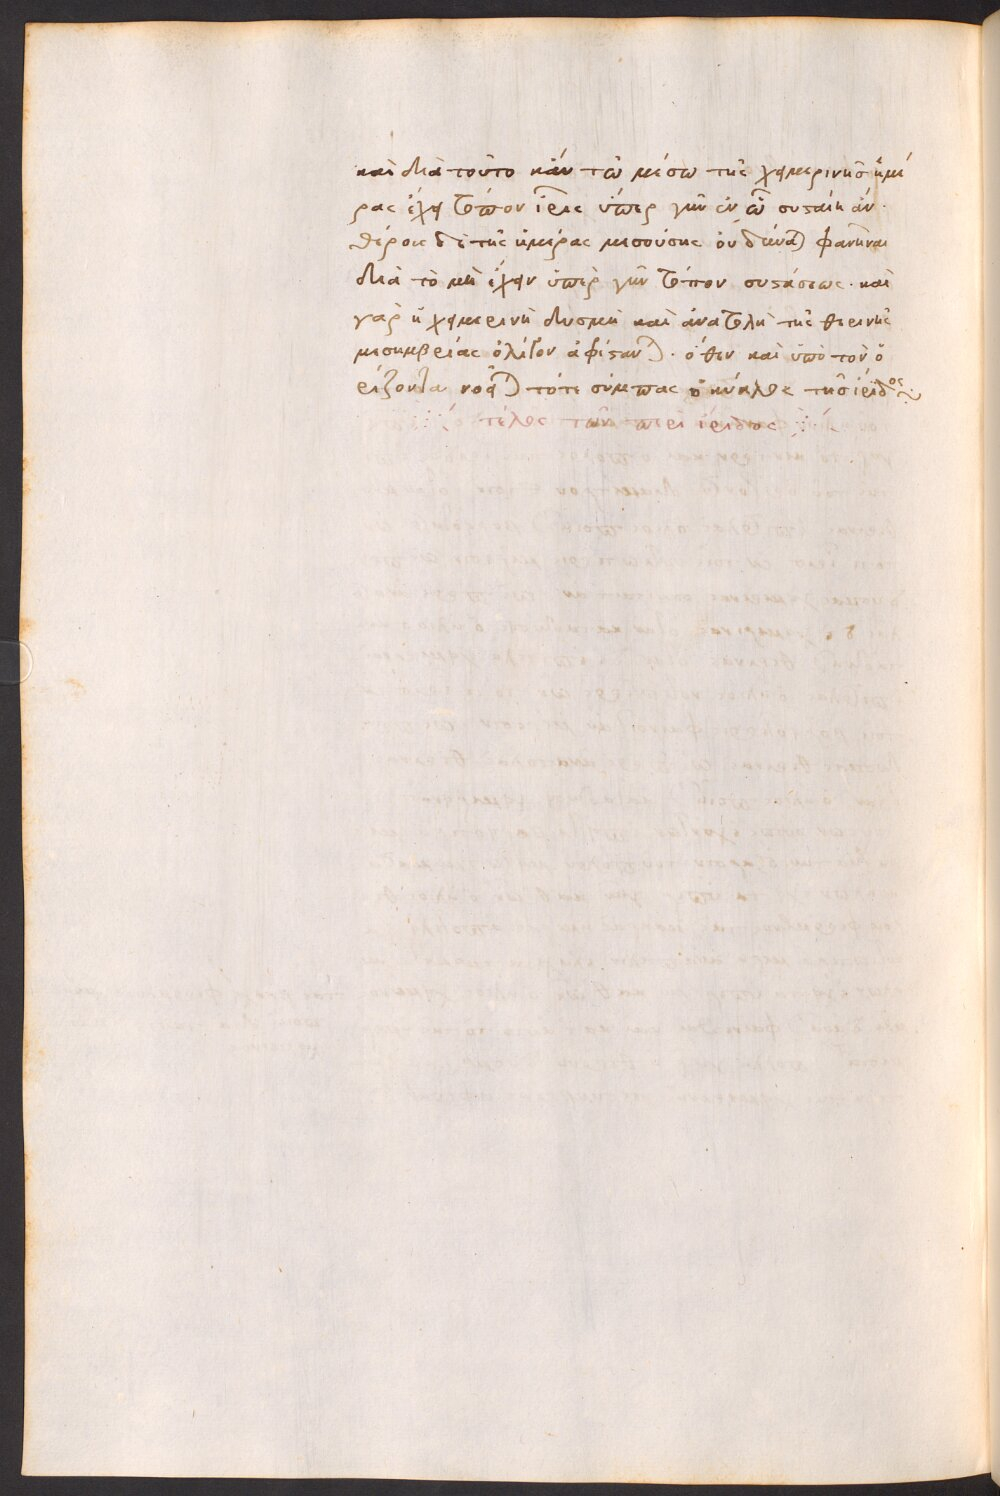 καὶ διὰ τοῦτο κἀν τῷ μέσῳ τῆς χειμερινῆς ἡμέ
ρας ἔχει τόπον ἶρις ὑπὲρ γῆν ἐν ᾧ συσταίη ἄν·
θέρους δὲ τῆς ἡμέρας μεσούσης οὐ δύναται φανῆναι
διὰ τὸ μὴ ἔχειν ὑπὲρ γῆν τόπον συστάσεως· καὶ
γὰρ ἡ χειμερινὴ δυσμὴ καὶ ἀνατολὴ τῆς θερινῆς
μεσημβρίας ὀλίγον ἀφίσταται· ὅθεν καὶ ὑπὸ τὸν ὁ
ρίζοντα νοεῖται τότε σύμπας ὁ κύκλος τῆς ἴριδος
τέλος τῶν περὶ ἴριδος